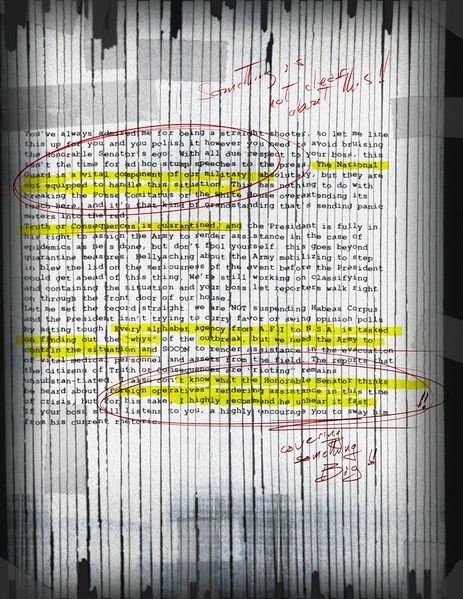 Something is
not clear
about this!!
You've always admired me for being a straight-shooter, so let me line
this up for you and you polish it however you need to avoid bruising
the honorable Senator's ego. With all due respect to your boss, this
isn't the time for ad hoc stump speeches to the press. The National
Guard is a vital component of our military absolutely, but they are
not equipped to handle this situation. This has nothing to do with
breaking the Posse Comitatus or the White House overextending its
reach here, and it's that kind of grandstanding that's sending panic
meters into the red.
Truth or Consequences is quarantined, and the President is fully in
his right to assign the Army to render assistance in the case of
epidemics as he's done, but don't fool yourself, this goes beyond
quarantine measures. Bellyaching about the Army mobilizing to step
in blew the lid on the seriousness of the event before the President
could get ahead of this thing. We're still working on classifying
and containing the situation and your boss let reporters walk right
on through the front door of our house.
Let me set the record straight: we are NOT suspending Habeas Corpus
and the President isn't trying to carry favor or swing opinion polls
by acting tough. Every alphabet agency from A.F.I to N.S.A. is tasked
on finding out the "whys" of the outbreak, but we need the Army to
contain the situation and SOCOM to render assistance in the evacuation
of vital medical personnel and assets from the field. The reports that
the citizens of Truth or Consequences are "rioting" remains
unsubstantiated. I also don't know what the Honorable Senator thinks
he heard about "foreign operatives" rendering assistance in this time
of crisis, but for his sake, I highly recommend he unhear it fast.
If your boss still listens to you, a highly encourage you to sway him
from his current rhetoric.
!!
covering
something
Big!!